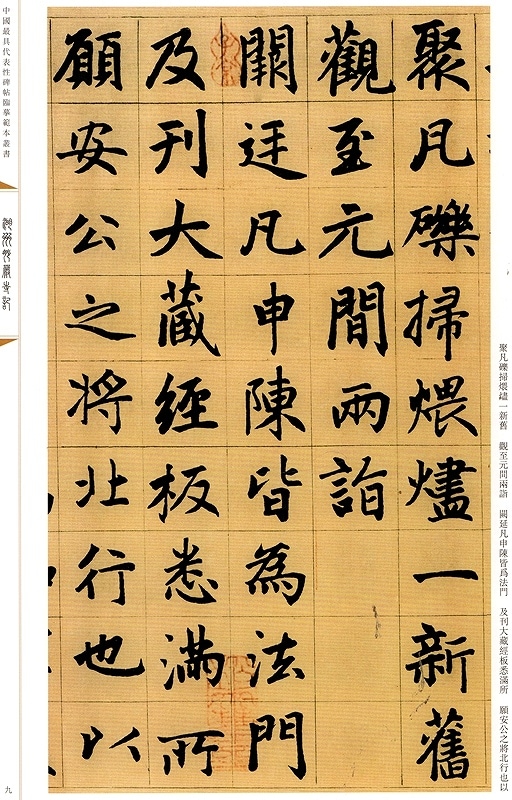 聚凡礫掃煨燼一新舊
觀至元間兩詣
闕廷凡申陳皆為法門
及刊大藏經板悉滿所
願安公之將北行也以
聚凡礫掃煨燼一新舊　觀至元間兩詣　闕延凡申陳皆爲法門　及刊大藏經板悉滿所　願安公之將北行也以
中國最具代表性碑帖臨摹範本叢書
湖州妙嚴寺記
九